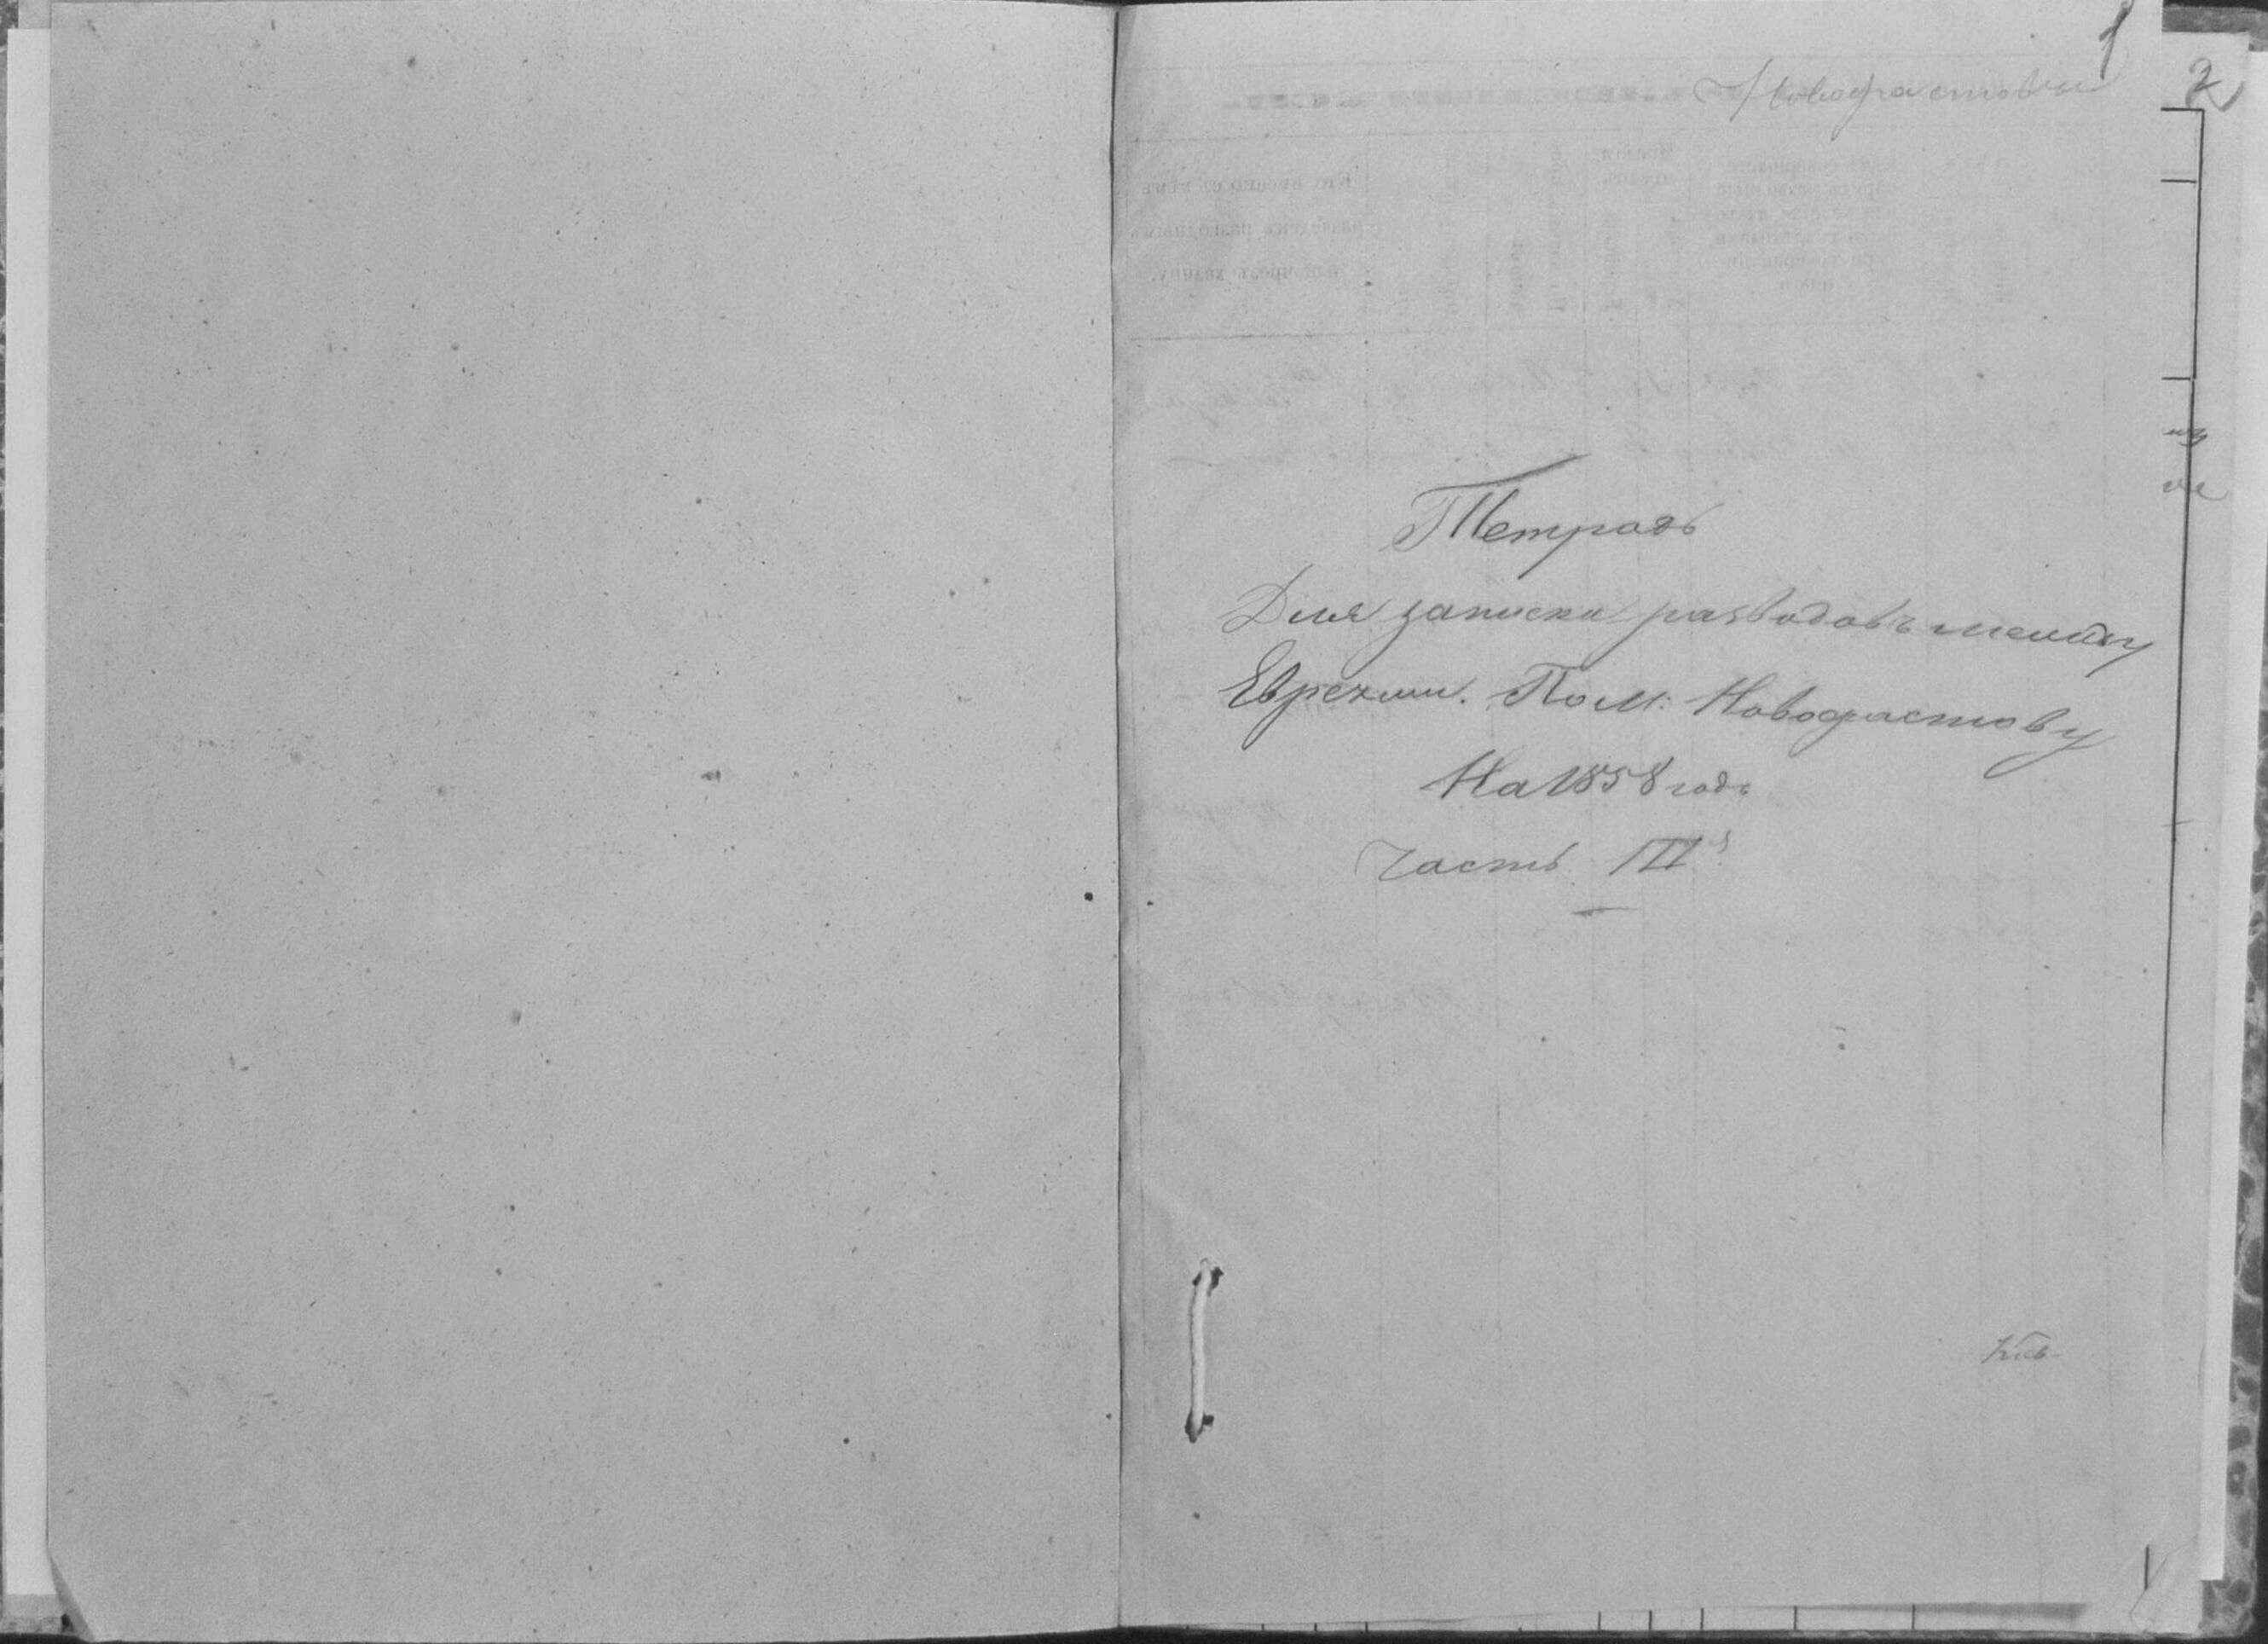 1
Новофастовъ
2
Тетрадь
Для записки разводовъ между
Евреями. По М: Новофастову
На 1858 годъ
Часть III я
Кив-